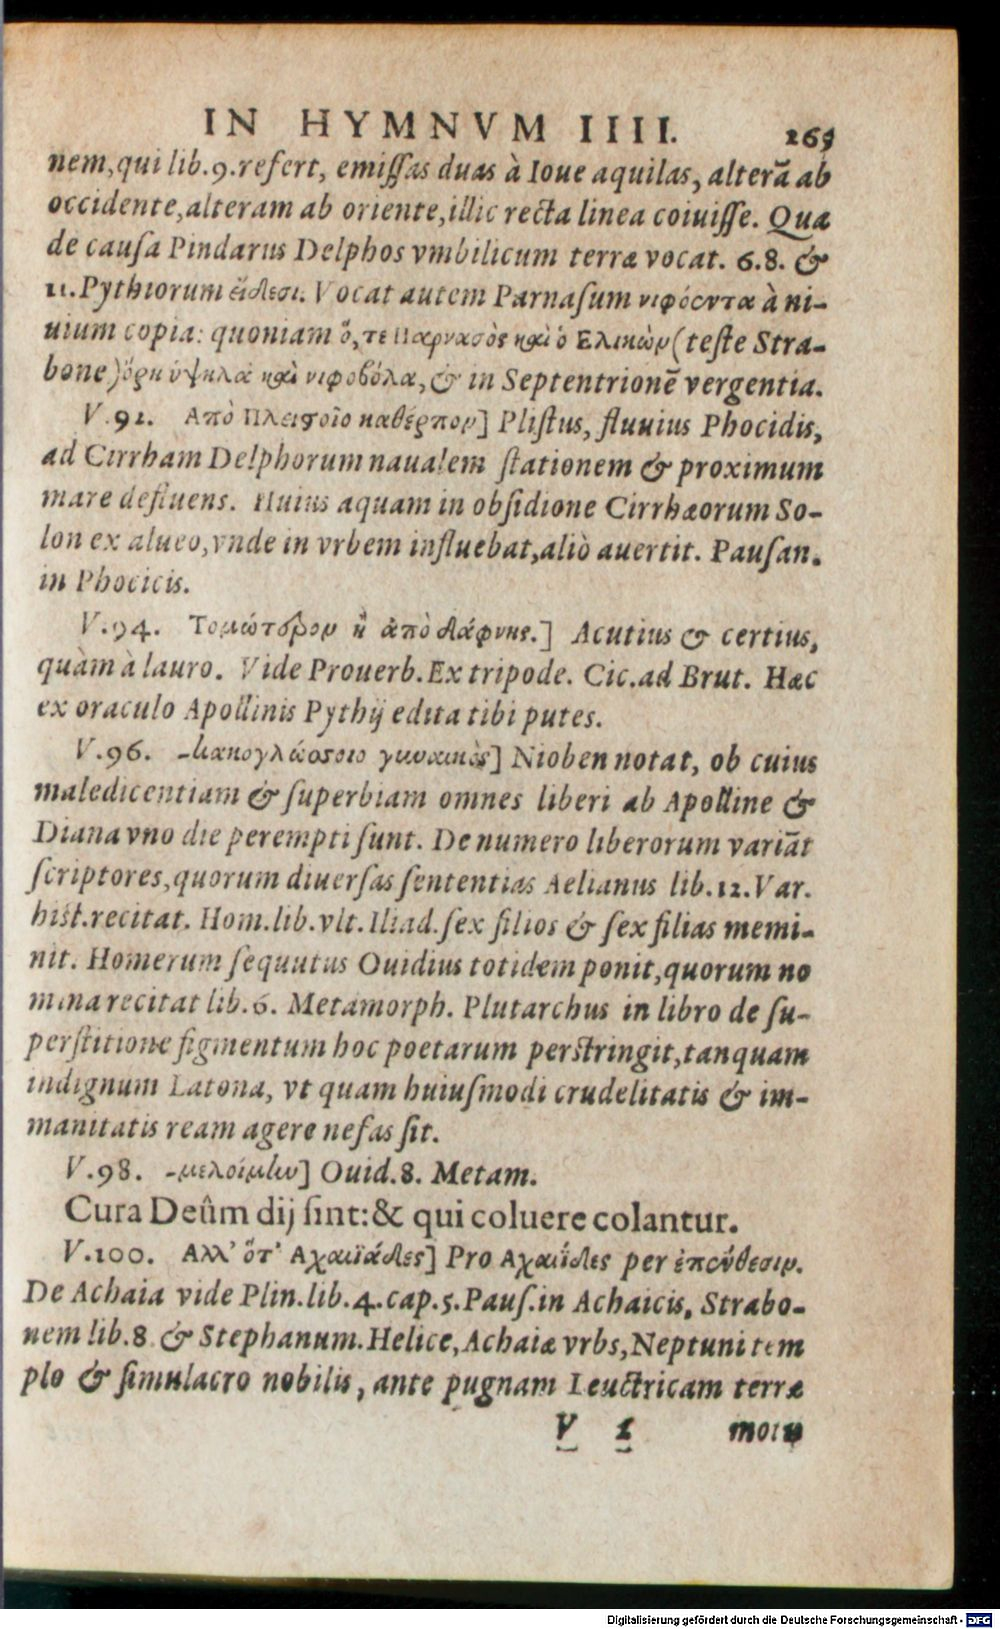 IN HYMNVM IIII. 265
nem, qui lib.9. refert, emissas duas à Ioue aquilas, alterā ab
occidente, alteram ab oriente, illic recta linea coiuisse. Qua
de causa Pindarus Delphos vmbilicum terræ vocat. 6.8. &
11. Pythiorum εἴδεσι. Vocat autem Parnasum νιφόεντα à ni-
uium copia: quoniam ὅ, τε Παρνασὸς καὶ ὁ Ελικὼν (teste Stra-
bone) ὄρη ὑψηλὰ καὶ νιφοβόλα, & in Septentrionē vergentia.
V.92. Απὸ Πλειστοῖο καθέρπον] Plistus, fluuius Phocidis,
ad Cirrham Delphorum naualem stationem & proximum
mare defluens. Huius aquam in obsidione Cirrhæorum So-
lon ex alueo, vnde in vrbem influebat, aliò auertit. Pausan.
in Phocicis.
V.94. Τομώτερον ἢ ἀπὸ δάφνης.] Acutius & certius,
quàm à lauro. Vide Prouerb. Ex tripode. Cic. ad Brut. Hæc
ex oraculo Apollinis Pythij edita tibi putes.
V.96. -κακογλώσσοιο γυναικὸς] Nioben notat, ob cuius
maledicentiam & superbiam omnes liberi ab Apolline &
Diana vno die perempti sunt. De numero liberorum variāt
scriptores, quorum diuersas sententias Aelianus lib.12. Var.
hist. recitat. Hom. lib. vlt. Iliad. sex filios & sex filias memi-
nit. Homerum sequutus Ouidius totidem ponit, quorum no
mina recitat lib.6. Metamorph. Plutarchus in libro de su-
perstitione figmentum hoc poetarum perstringit, tanquam
indignum Latona, vt quam huiusmodi crudelitatis & im-
manitatis ream agere nefas sit.
V.98. -μελοίμην] Ouid.8. Metam.
Cura Deûm dij sint: & qui coluere colantur.
V.100. Αλλ' ὅτ' Αχαιϊάδες] Pro Αχαιΐδες per ἐπένθεσιν.
De Achaia vide Plin. lib.4. cap.5. Paus. in Achaicis, Strabo-
nem lib.8 & Stephanum. Helice, Achaiæ vrbs, Neptuni tem
plo & simulacro nobilis, ante pugnam Leuctricam terræ
V 1 motu
Digitalisierung gefördert durch die Deutsche Forschungsgemeinschaft - DFG